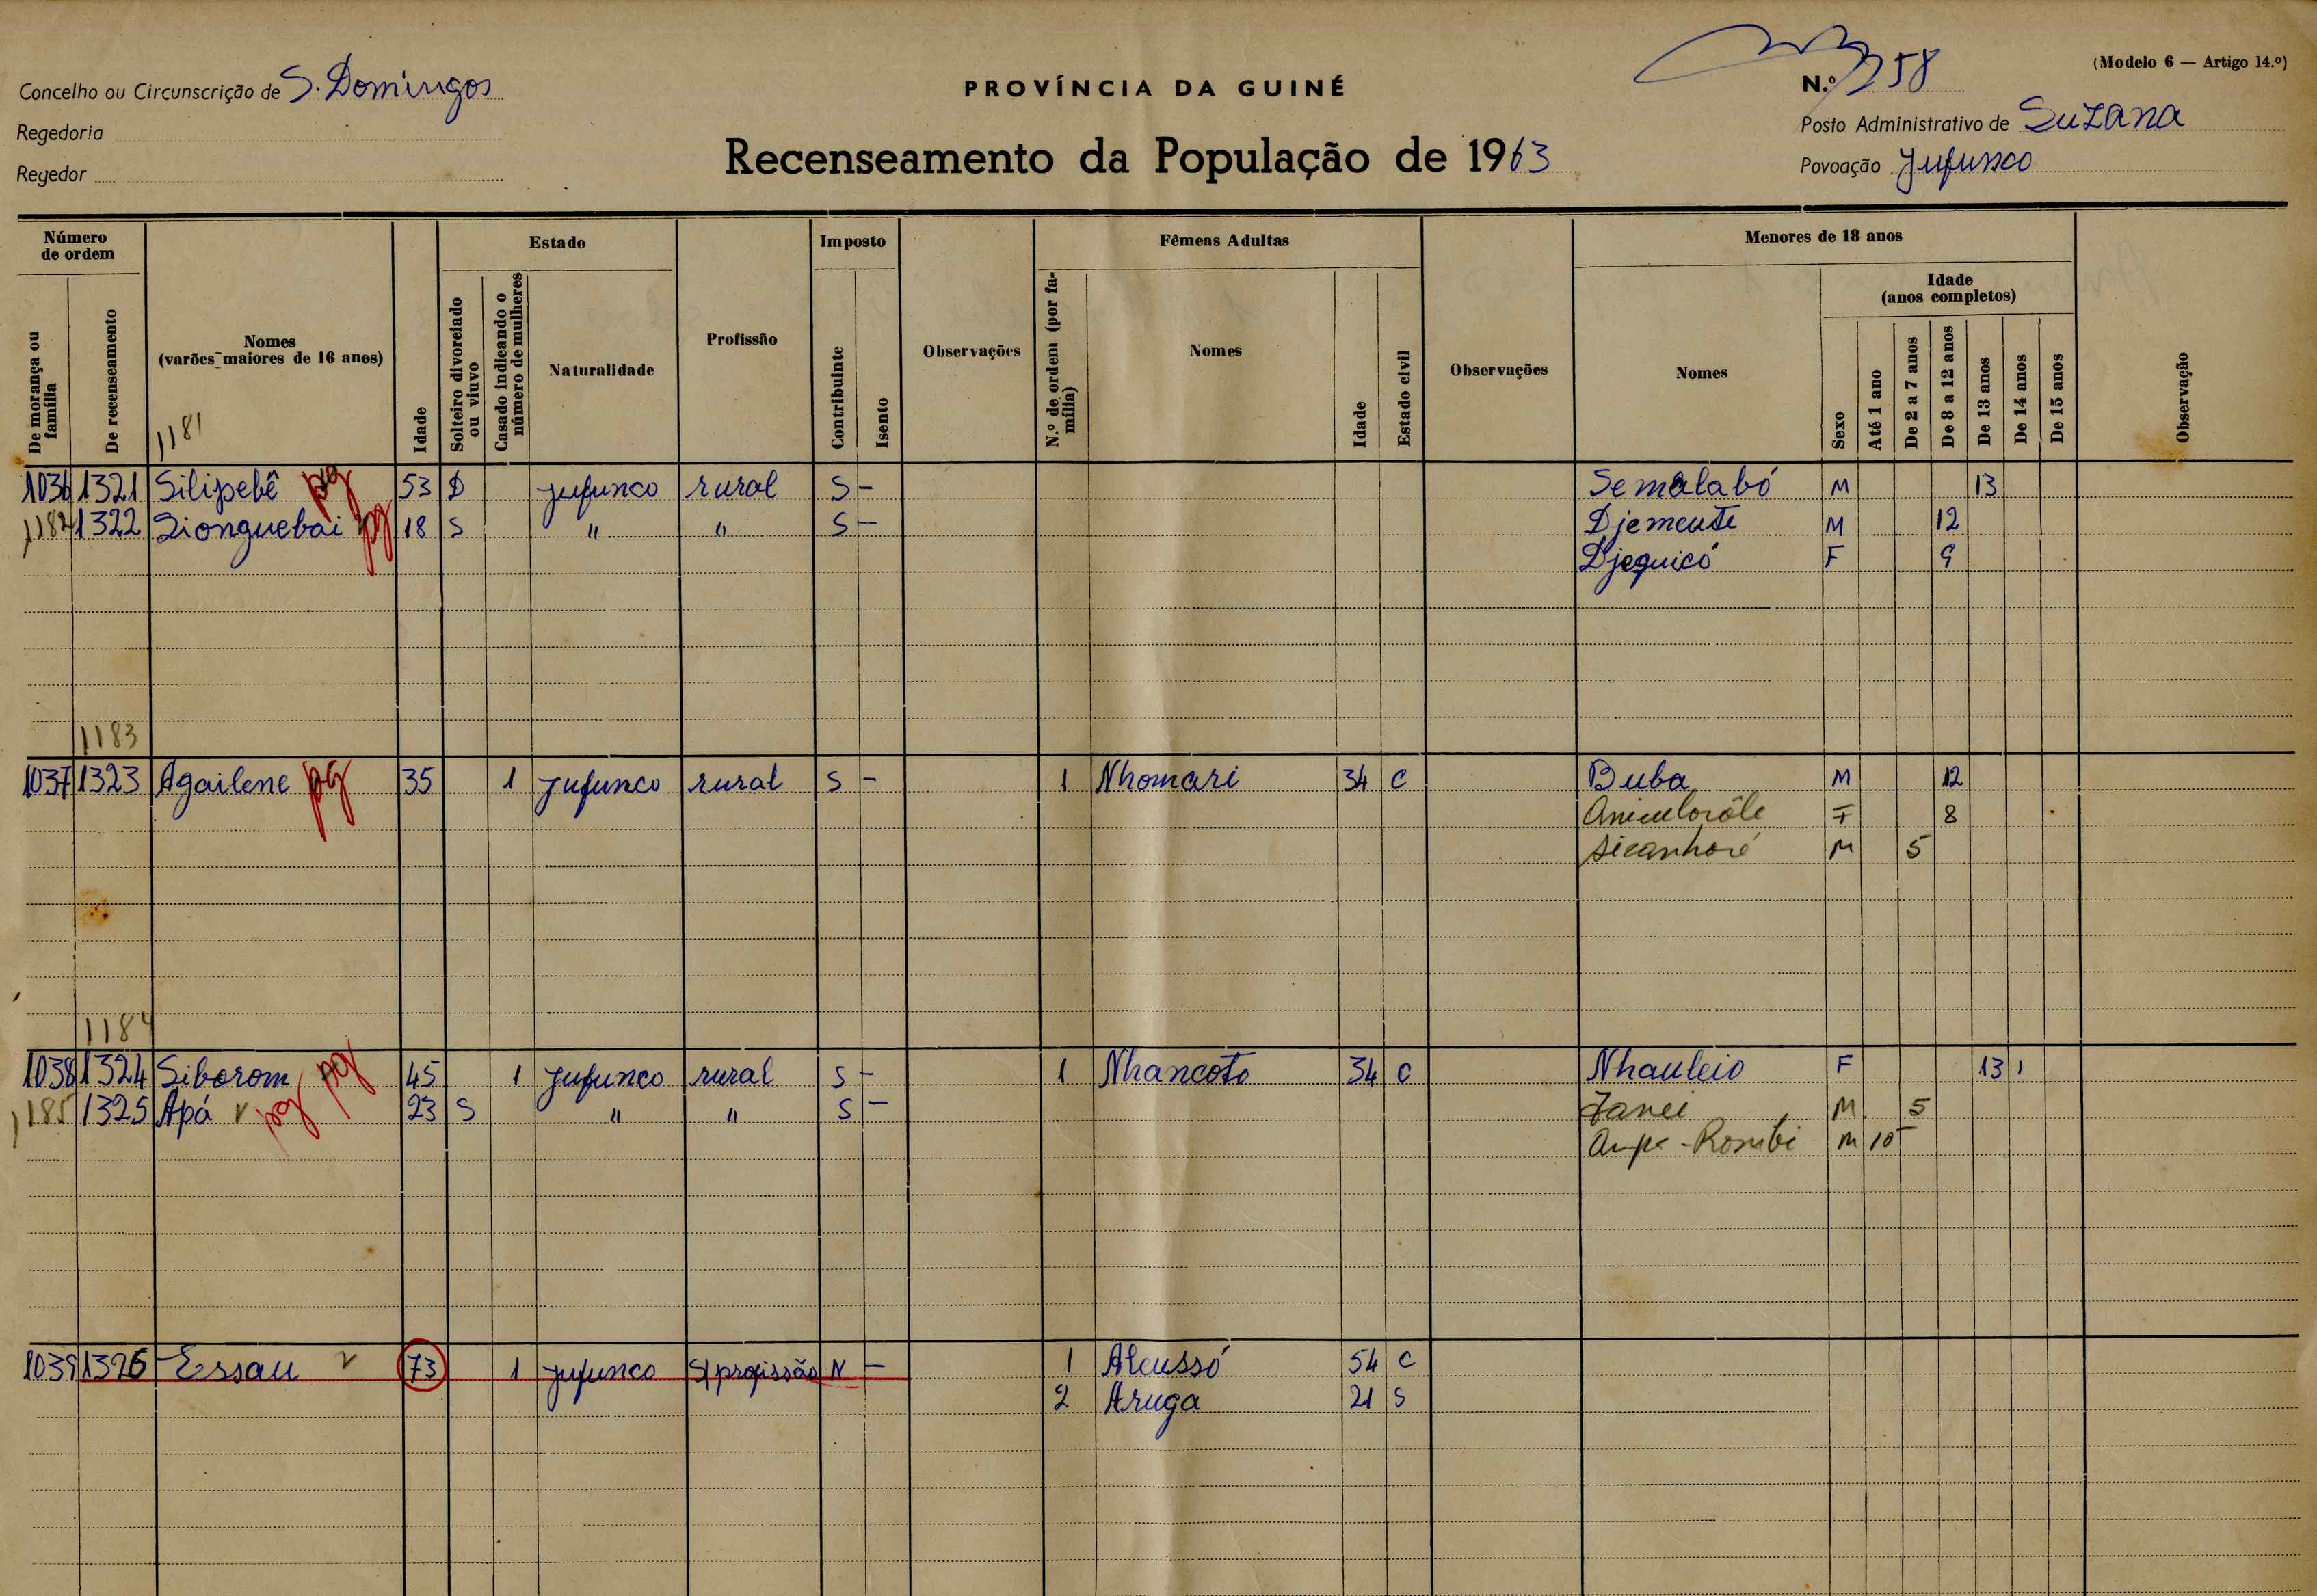 (Modelo 6 — Artigo 14.º)
Concelho ou Circunscrição de S. Domingos
PROVÍNCIA DA GUINÉ
N.º 258
Regedoria
Posto Administrativo de Suzana
Recenseamento da População de 1963
Regedor
Povoação Jufunco
Número de ordem
De morança ou família
De recenseamento
Nomes
(varões maiores de 16 anos)
Idade
Estado
Solteiro divorciado ou viuvo
Casado indicando o número de mulheres
Naturalidade
Profissão
Imposto
Contribuinte
Isento
Observações
Fêmeas Adultas
N.º de ordem (por família)
Nomes
Idade
Estado civil
Observações
Menores de 18 anos
Nomes
Sexo
Idade
(anos completos)
Até 1 ano
De 2 a 7 anos
De 8 a 12 anos
De 13 anos
De 14 anos
De 15 anos
Observação
1181
1036 1321 Silipebê pg 53 D Jufunco rural S - Semalabó M 13
1182 1322 Zionguebai pg 18 S " " S - Djemente M 12
Djequicó F 9
1183
1037 1323 Agailene pg 35 1 Jufunco rural S - 1 Nhomari 34 C Buba M 12
F 8
Sicanhoré M 5
1184
1038 1324 Siborom pg 45 1 Jufunco rural S - 1 Nhancoto 34 C Nhauleio F 13
1185 1325 Apá v pg 23 S " " S - Zanei M 5
Rombi M 10
1039 1326 Essau v 73 1 Jufunco S/ profissão N - 1 Aleussó 54 C
2 Aruga 21 S